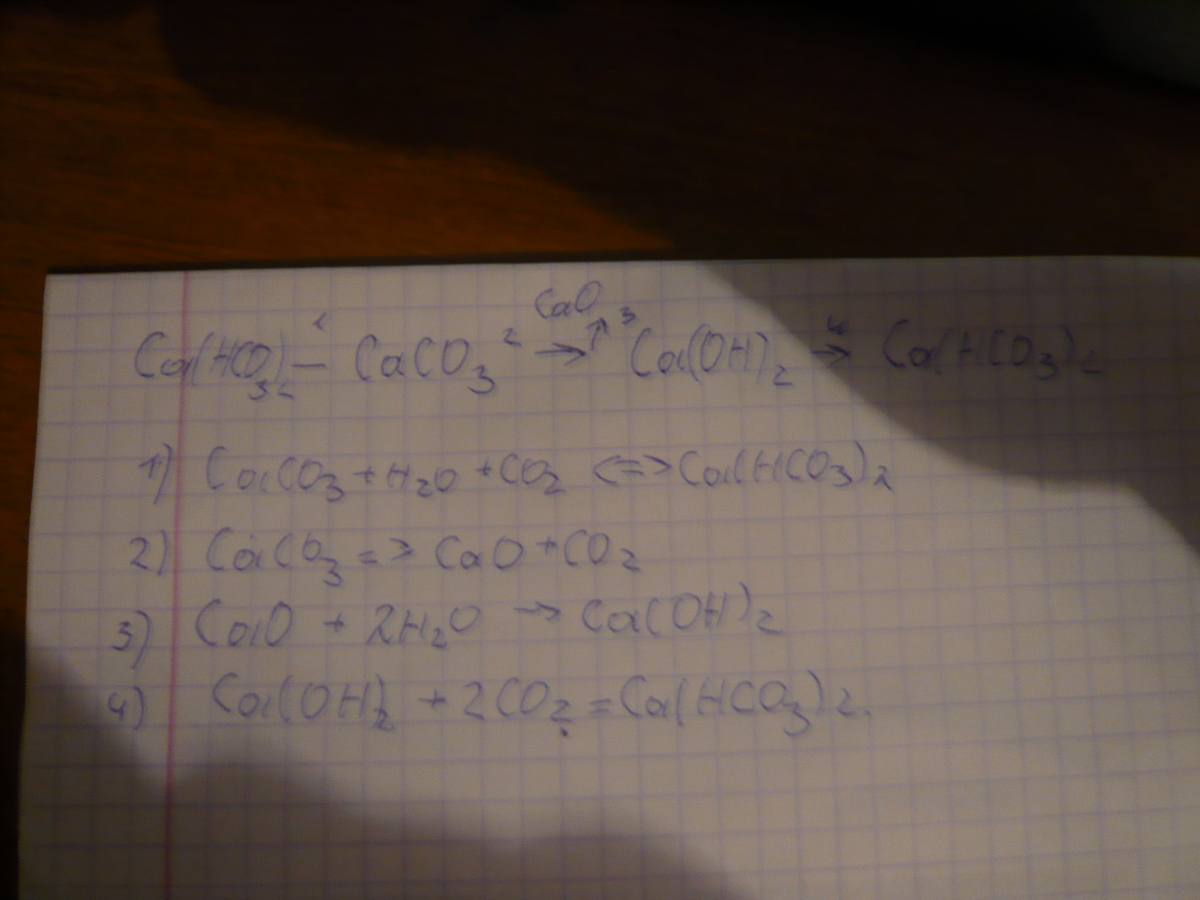 CaO
Ca(HCO3)2 —1 CaCO3 2→ ↑3 Ca(OH)2 4→ Ca(HCO3)2
1) CaCO3 + H2O + CO2 <=> Ca(HCO3)2
2) CaCO3 => CaO + CO2
3) CaO + 2H2O → Ca(OH)2
4) Ca(OH)2 + 2CO2 = Ca(HCO3)2.